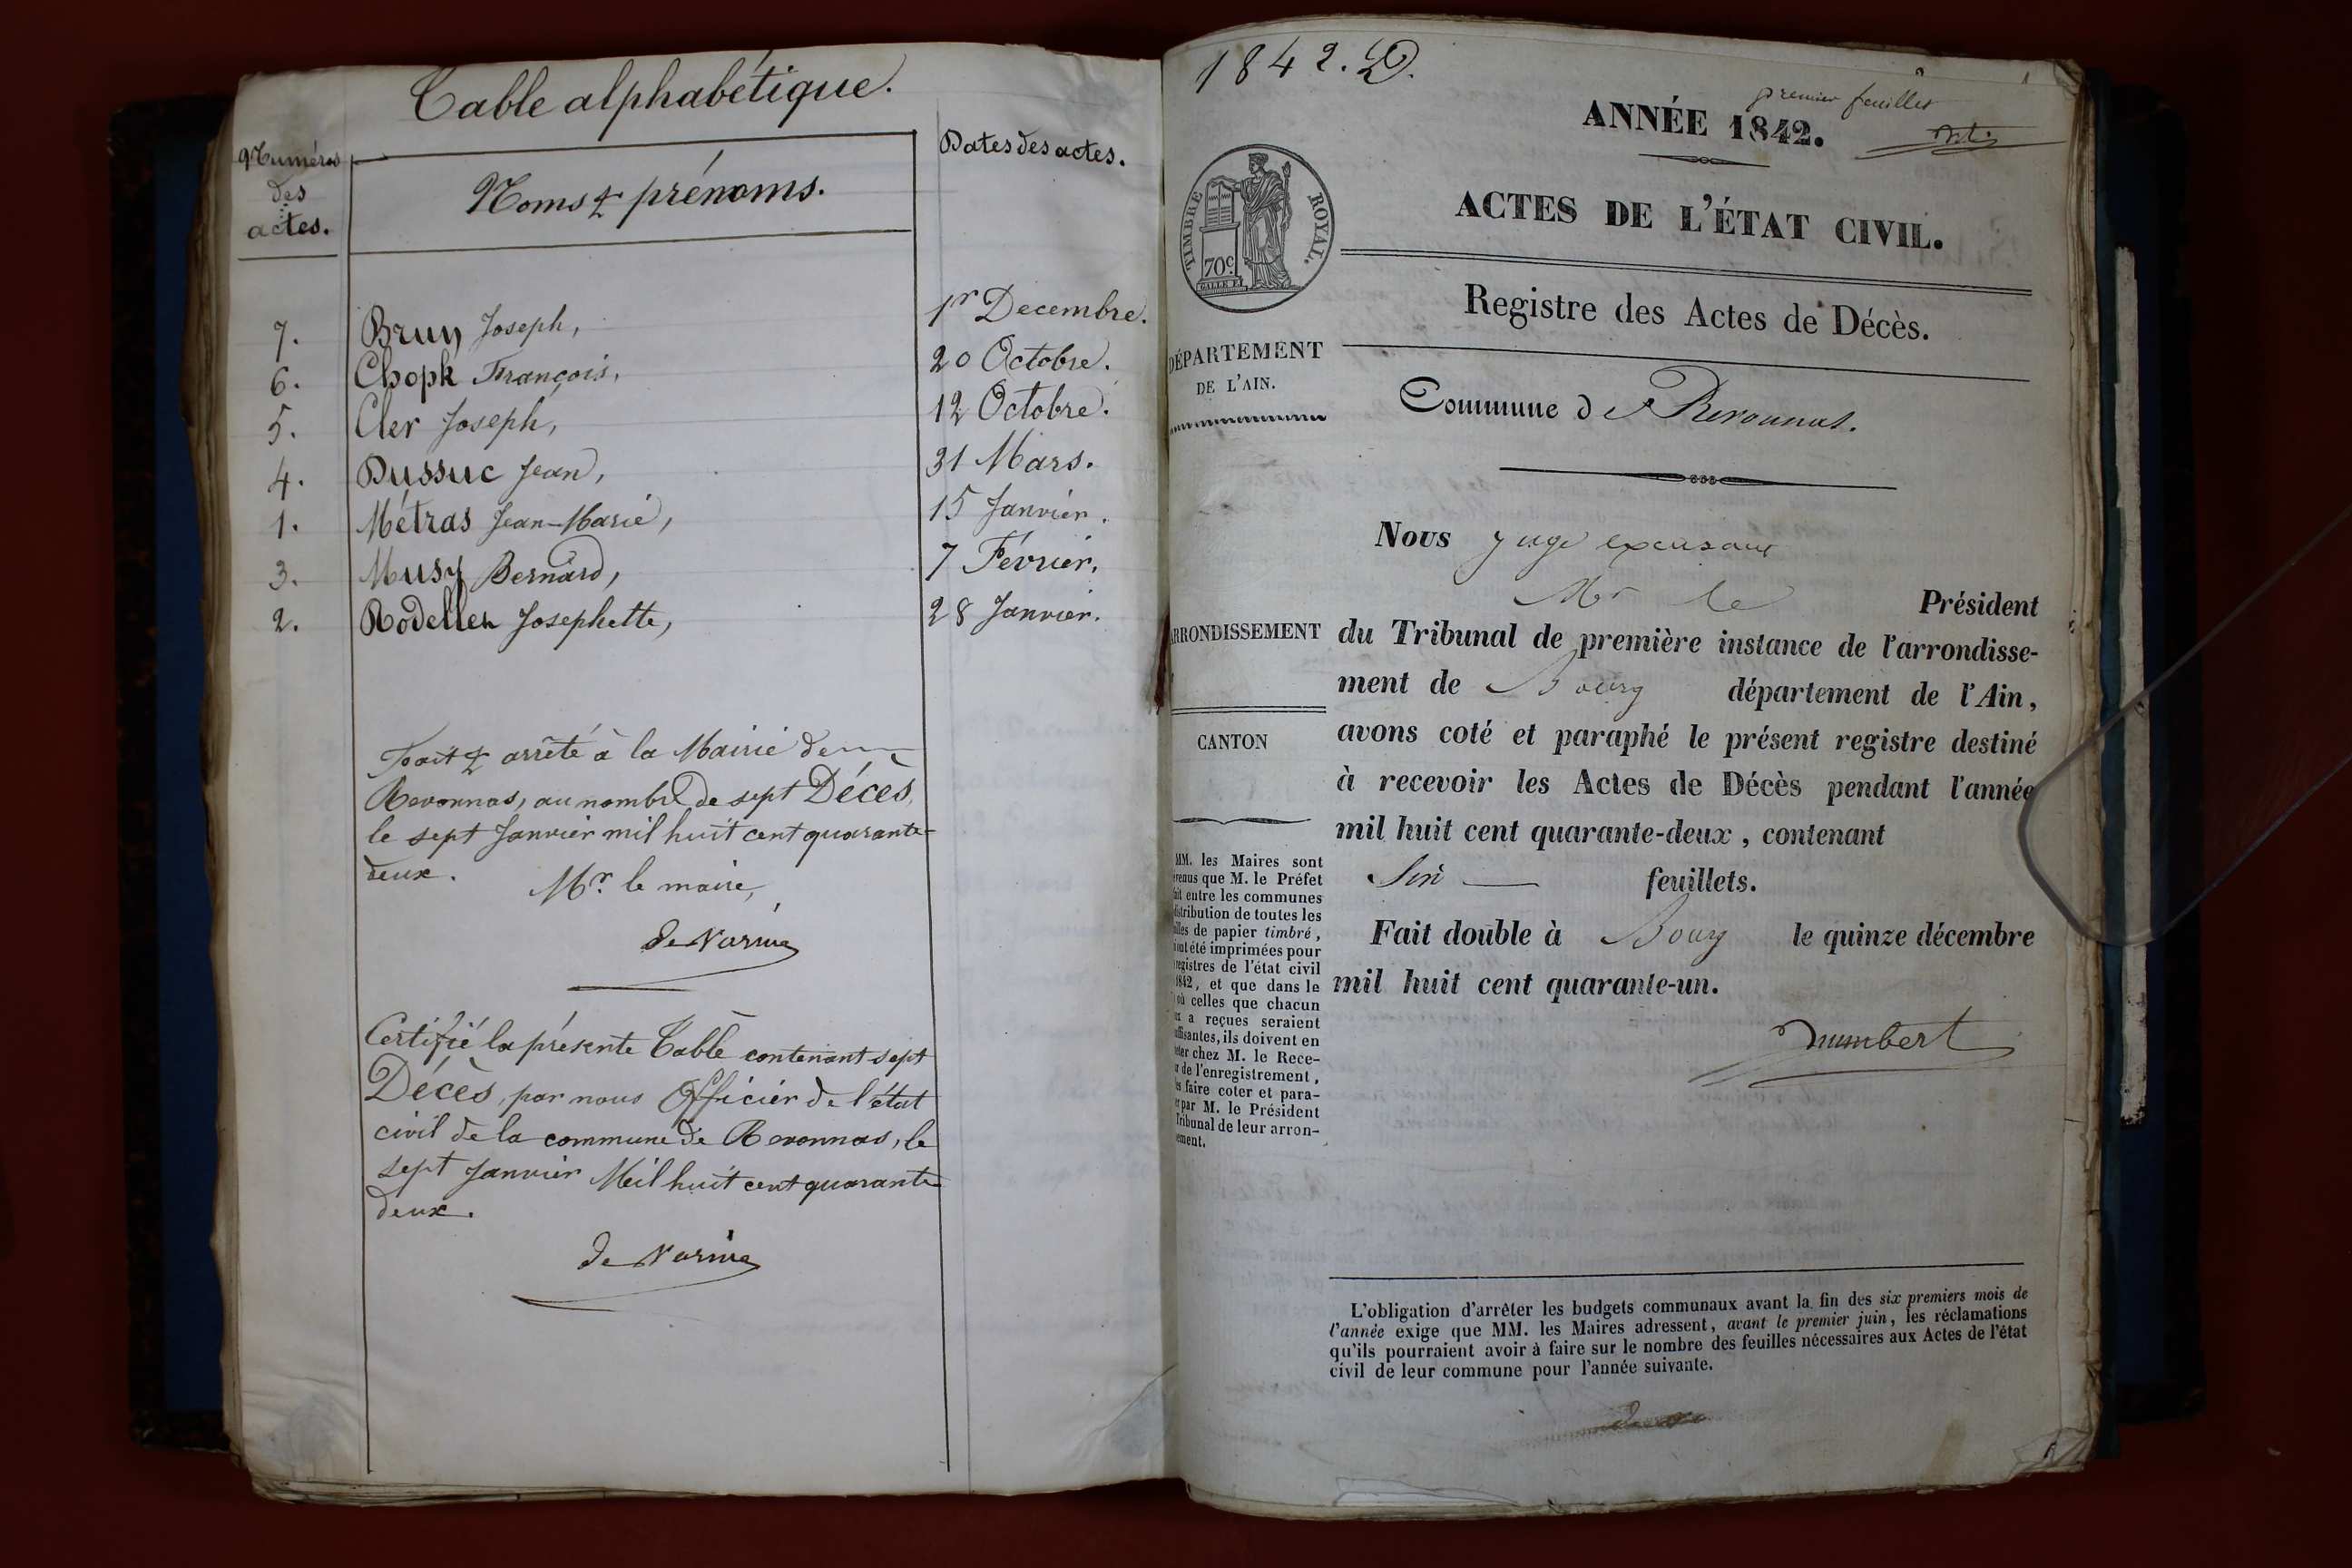 Table alphabétique.
Numéros
des
actes.
Noms & prénoms.
Dates des actes.
7. Brun Joseph, 1r Decembre.
6. Chopk François, 20 Octobre.
5. Cler Joseph, 12 Octobre.
4. Dussuc Jean, 31 Mars.
1. Métras Jean-Marie, 15 Janvier.
3. Musy Bernard, 7 Février.
2. Rodeller Josephette, 28 Janvier.
Fait & arrêté à la Mairie de
Revonnas, au nombre de sept Décès,
le sept Janvier mil huit cent quarante-
deux.
Mr. le maire,
Certifié la présente Table contenant sept
Décès, par nous Officier de l'état
civil de la commune de Revonnas, le
sept Janvier Mil huit cent quarante
deux.
1842. D.
premier feuillet
ANNÉE 1842.
TIMBRE ROYAL.
70c.
ACTES DE L'ÉTAT CIVIL.
Registre des Actes de Décès.
DÉPARTEMENT
DE L'AIN.
Commune de Revonnas.
Nous juge excusant
Mr le Président
ARRONDISSEMENT
du Tribunal de première instance de l'arrondisse-
ment de Bourg département de l'Ain,
CANTON
avons coté et paraphé le présent registre destiné
à recevoir les Actes de Décès pendant l'année
mil huit cent quarante-deux, contenant
Six feuillets.
Fait double à Bourg le quinze décembre
mil huit cent quarante-un.
MM. les Maires sont
que M. le Préfet
entre les communes
distribution de toutes les
de papier timbré,
ont été imprimées pour
registres de l'état civil
1842, et que dans le
où celles que chacun
a reçues seraient
ils doivent en
chez M. le Rece-
de l'enregistrement,
les faire coter et para-
par M. le Président
Tribunal de leur arron-
L'obligation d'arrêter les budgets communaux avant la fin des six premiers mois de
l'année exige que MM. les Maires adressent, avant le premier juin, les réclamations
qu'ils pourraient avoir à faire sur le nombre des feuilles nécessaires aux Actes de l'état
civil de leur commune pour l'année suivante.